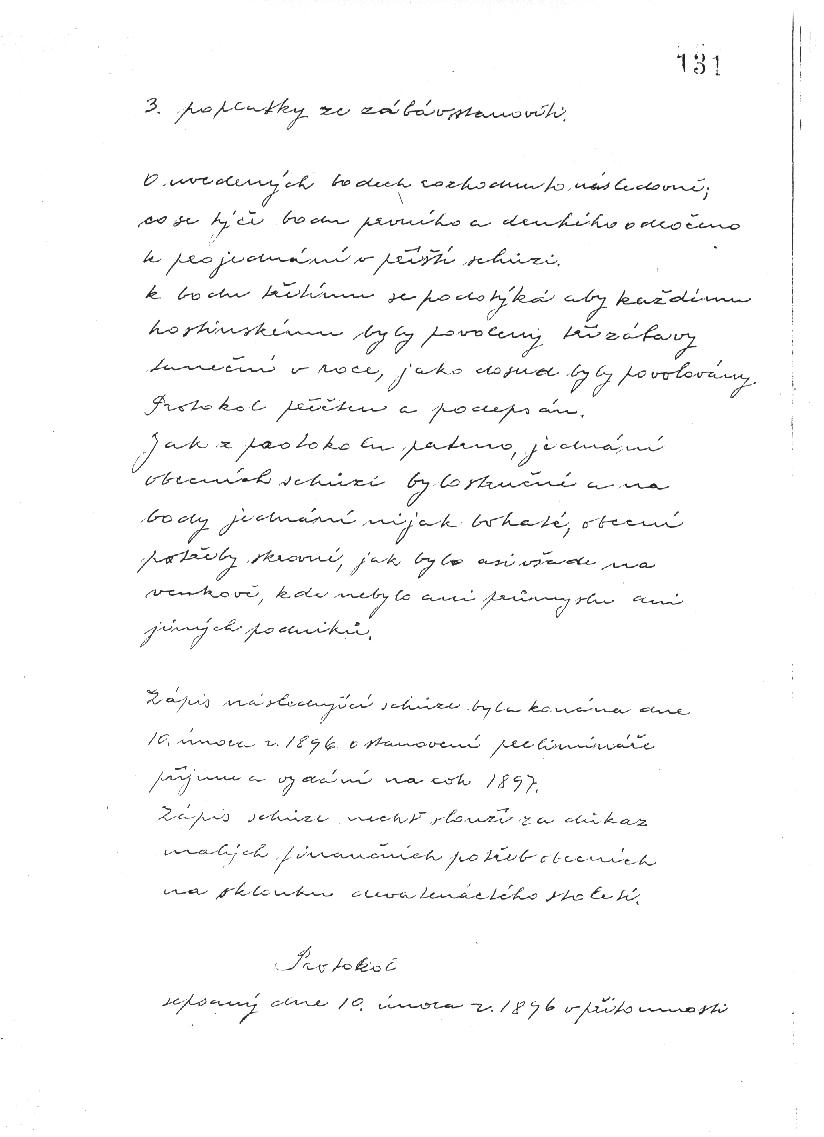 131
3. poplatky ze zábavstanovišti.
O uvedených bodech rozhodnuto následovně;
co se týče bodu prvního a druhého odročeno
k projednání v příští schůzi.
k bodu třetímu se podotýká aby každému
hostinskému byly povoleny tři zábavy
taneční v roce, jako dosud byly povolovány.
Protokol přečten a podepsán.
Jak z protokolu patrno, jednání
obecních schůzí bylo stručné a na
body jednání nijak bohaté, obecní
potřeby skrovné, jak bylo asi všade na
venkově, kde nebylo ani průmyslu ani
jiných podniků.
Zápis následující schůze byla konána dne
10. února r. 1896 o stanovení preliminaře
příjmu a vydání na rok 1897.
Zápis schůze nechť slouží za důkaz
malých finančních potřeb obecních
na sklonku devatenáctého století.
Protokol
sepsaný dne 10. února r. 1896 v přítomnosti